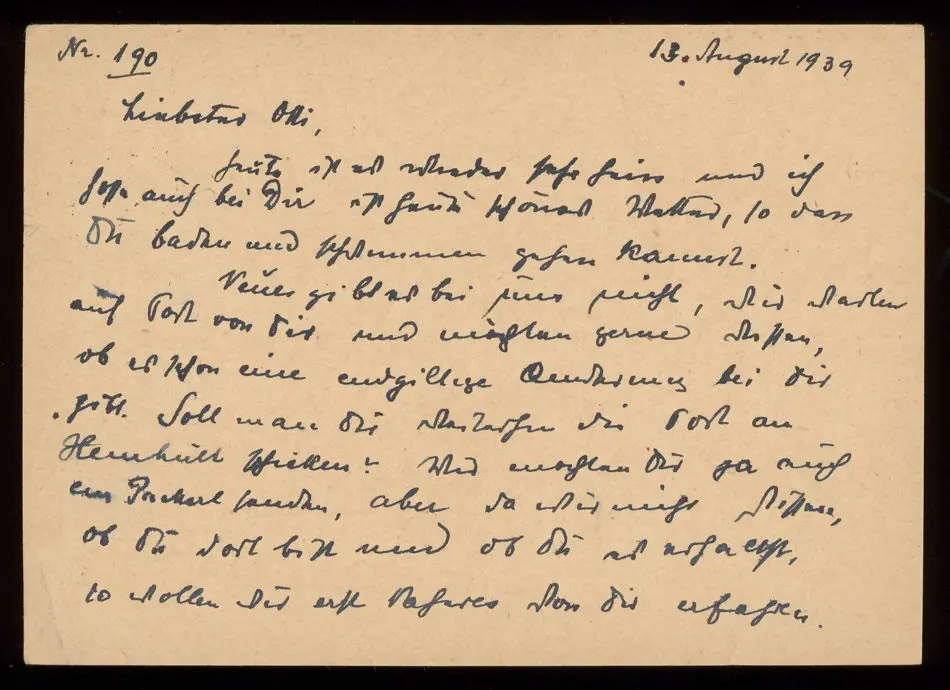 Nr. 190
13. August 1939
Liebster Otti,
heute ist es wieder sehr heiss und ich
hoffe auch bei Dir ist heute schönes Wetter, so dass
Du baden und schwimmen gehen kannst.
Neues gibt es bei uns nicht, wir warten
auf Post von Dir und möchten gerne wissen,
ob es schon eine endgiltige Aenderung bei Dir
gibt. Soll man Dir weiterhin die Post an
schicken? Wir möchten Dir ja auch
ein Packerl senden, aber da wir nicht wissen,
ob Du dort bist und ob Du es erhaeltst,
so wollen wir erst Näheres von Dir erfahren.